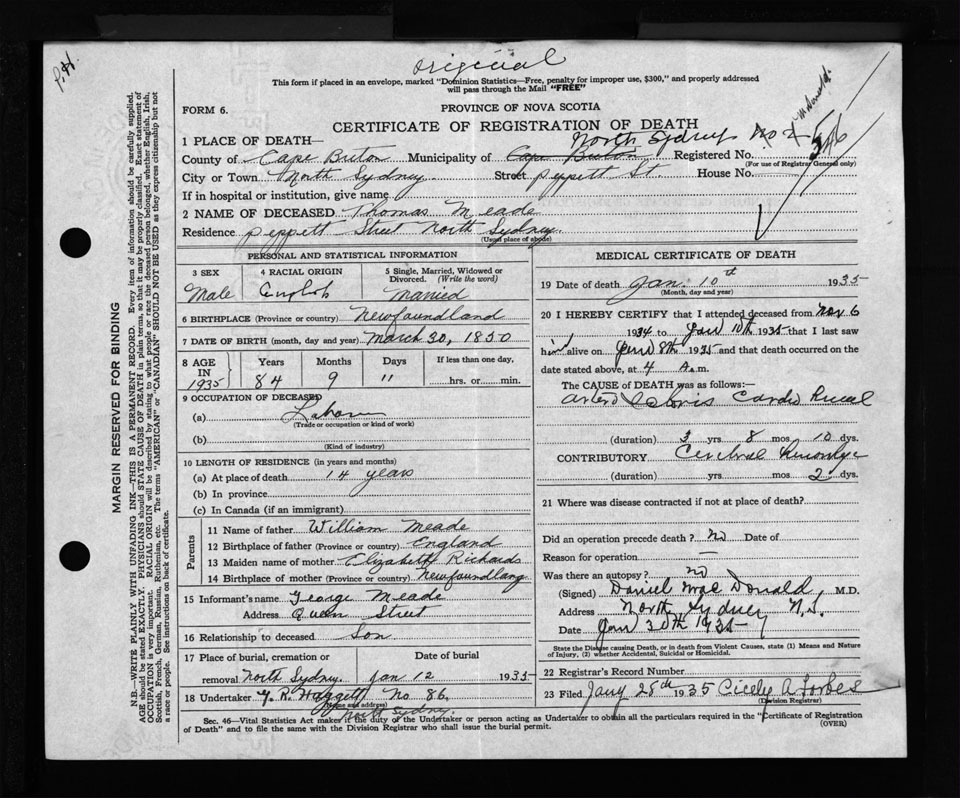 original
P.H.
This form if placed in an envelope, marked "Dominion Statistics—Free, penalty for improper use, $300," and properly addressed
will pass through the Mail "FREE"
FORM 6.
PROVINCE OF NOVA SCOTIA
CERTIFICATE OF REGISTRATION OF DEATH
McDonald.
1 PLACE OF DEATH— North Sydney No 2
County of Cape Breton Municipality of Cape Breton Registered No.
(For use of Registrar General only)
City or Town North Sydney Street Peppett St. House No.
If in hospital or institution, give name
2 NAME OF DECEASED Thomas Meade
Residence Peppett Street North Sydney.
(Usual place of abode)
PERSONAL AND STATISTICAL INFORMATION
3 SEX 4 RACIAL ORIGIN 5 Single, Married, Widowed or
Divorced. (Write the word)
Male English Married
6 BIRTHPLACE (Province or country) Newfoundland
7 DATE OF BIRTH (month, day and year) March 30, 1850
8 AGE IN 1935 Years Months Days If less than one day,
84 9 11 hrs. or min.
9 OCCUPATION OF DECEASED
(a)
(Trade or occupation or kind of work)
(b)
(Kind of industry)
10 LENGTH OF RESIDENCE (in years and months)
(a) At place of death 14 years
(b) In province
(c) In Canada (if an immigrant)
Parents
11 Name of father William Meade
12 Birthplace of father (Province or country) England
13 Maiden name of mother Elizabeth Richards
14 Birthplace of mother (Province or country) Newfoundland
15 Informant's name George Meade
Address Queen Street
16 Relationship to deceased Son
17 Place of burial, cremation or Date of burial
removal North Sydney. Jan 12 1935
18 Undertaker No 86.
(Name and address)
North Sydney.
MEDICAL CERTIFICATE OF DEATH
19 Date of death Jan. 10th 1935
(Month, day and year)
20 I HEREBY CERTIFY that I attended deceased from Nov 6
1934 to Jan 10th 1935 that I last saw
him alive on Jan 8th 1935 and that death occurred on the
date stated above, at 4 A.m.
The CAUSE of DEATH was as follows:—
Cardio Renal
(duration) 3 yrs. 8 mos. 10 dys.
CONTRIBUTORY Cerebral
(duration) yrs. mos. 2 dys.
21 Where was disease contracted if not at place of death?
Did an operation precede death? No Date of
Reason for operation —
Was there an autopsy? no
(Signed) Daniel MacDonald, M.D.
Address North Sydney N.S.
Date Jan 30th 1935
State the Disease causing Death, or in death from Violent Causes, state (1) Means and Nature
of Injury, (2) whether Accidental, Suicidal or Homicidal.
22 Registrar's Record Number
23 Filed Jany 28th 1935 Cicely A Forbes
(Division Registrar)
Sec. 46—Vital Statistics Act makes it the duty of the Undertaker or person acting as Undertaker to obtain all the particulars required in the "Certificate of Registration
of Death" and to file the same with the Division Registrar who shall issue the burial permit. (OVER)
MARGIN RESERVED FOR BINDING
N.B.—WRITE PLAINLY WITH UNFADING INK—THIS IS A PERMANENT RECORD. Every item of information should be carefully supplied.
AGE should be stated EXACTLY. PHYSICIANS should STATE CAUSE OF DEATH in plain terms, so that it may be properly classified. Exact statement of
OCCUPATION is very important. RACIAL ORIGIN will be described by stating to what people or race the deceased person belonged, whether English, Irish,
Scottish, French, German, Russian, Ruthenian, etc. The terms "AMERICAN" or "CANADIAN" SHOULD NOT BE USED as they express citizenship but not
a race or people. See instructions on back of certificate.